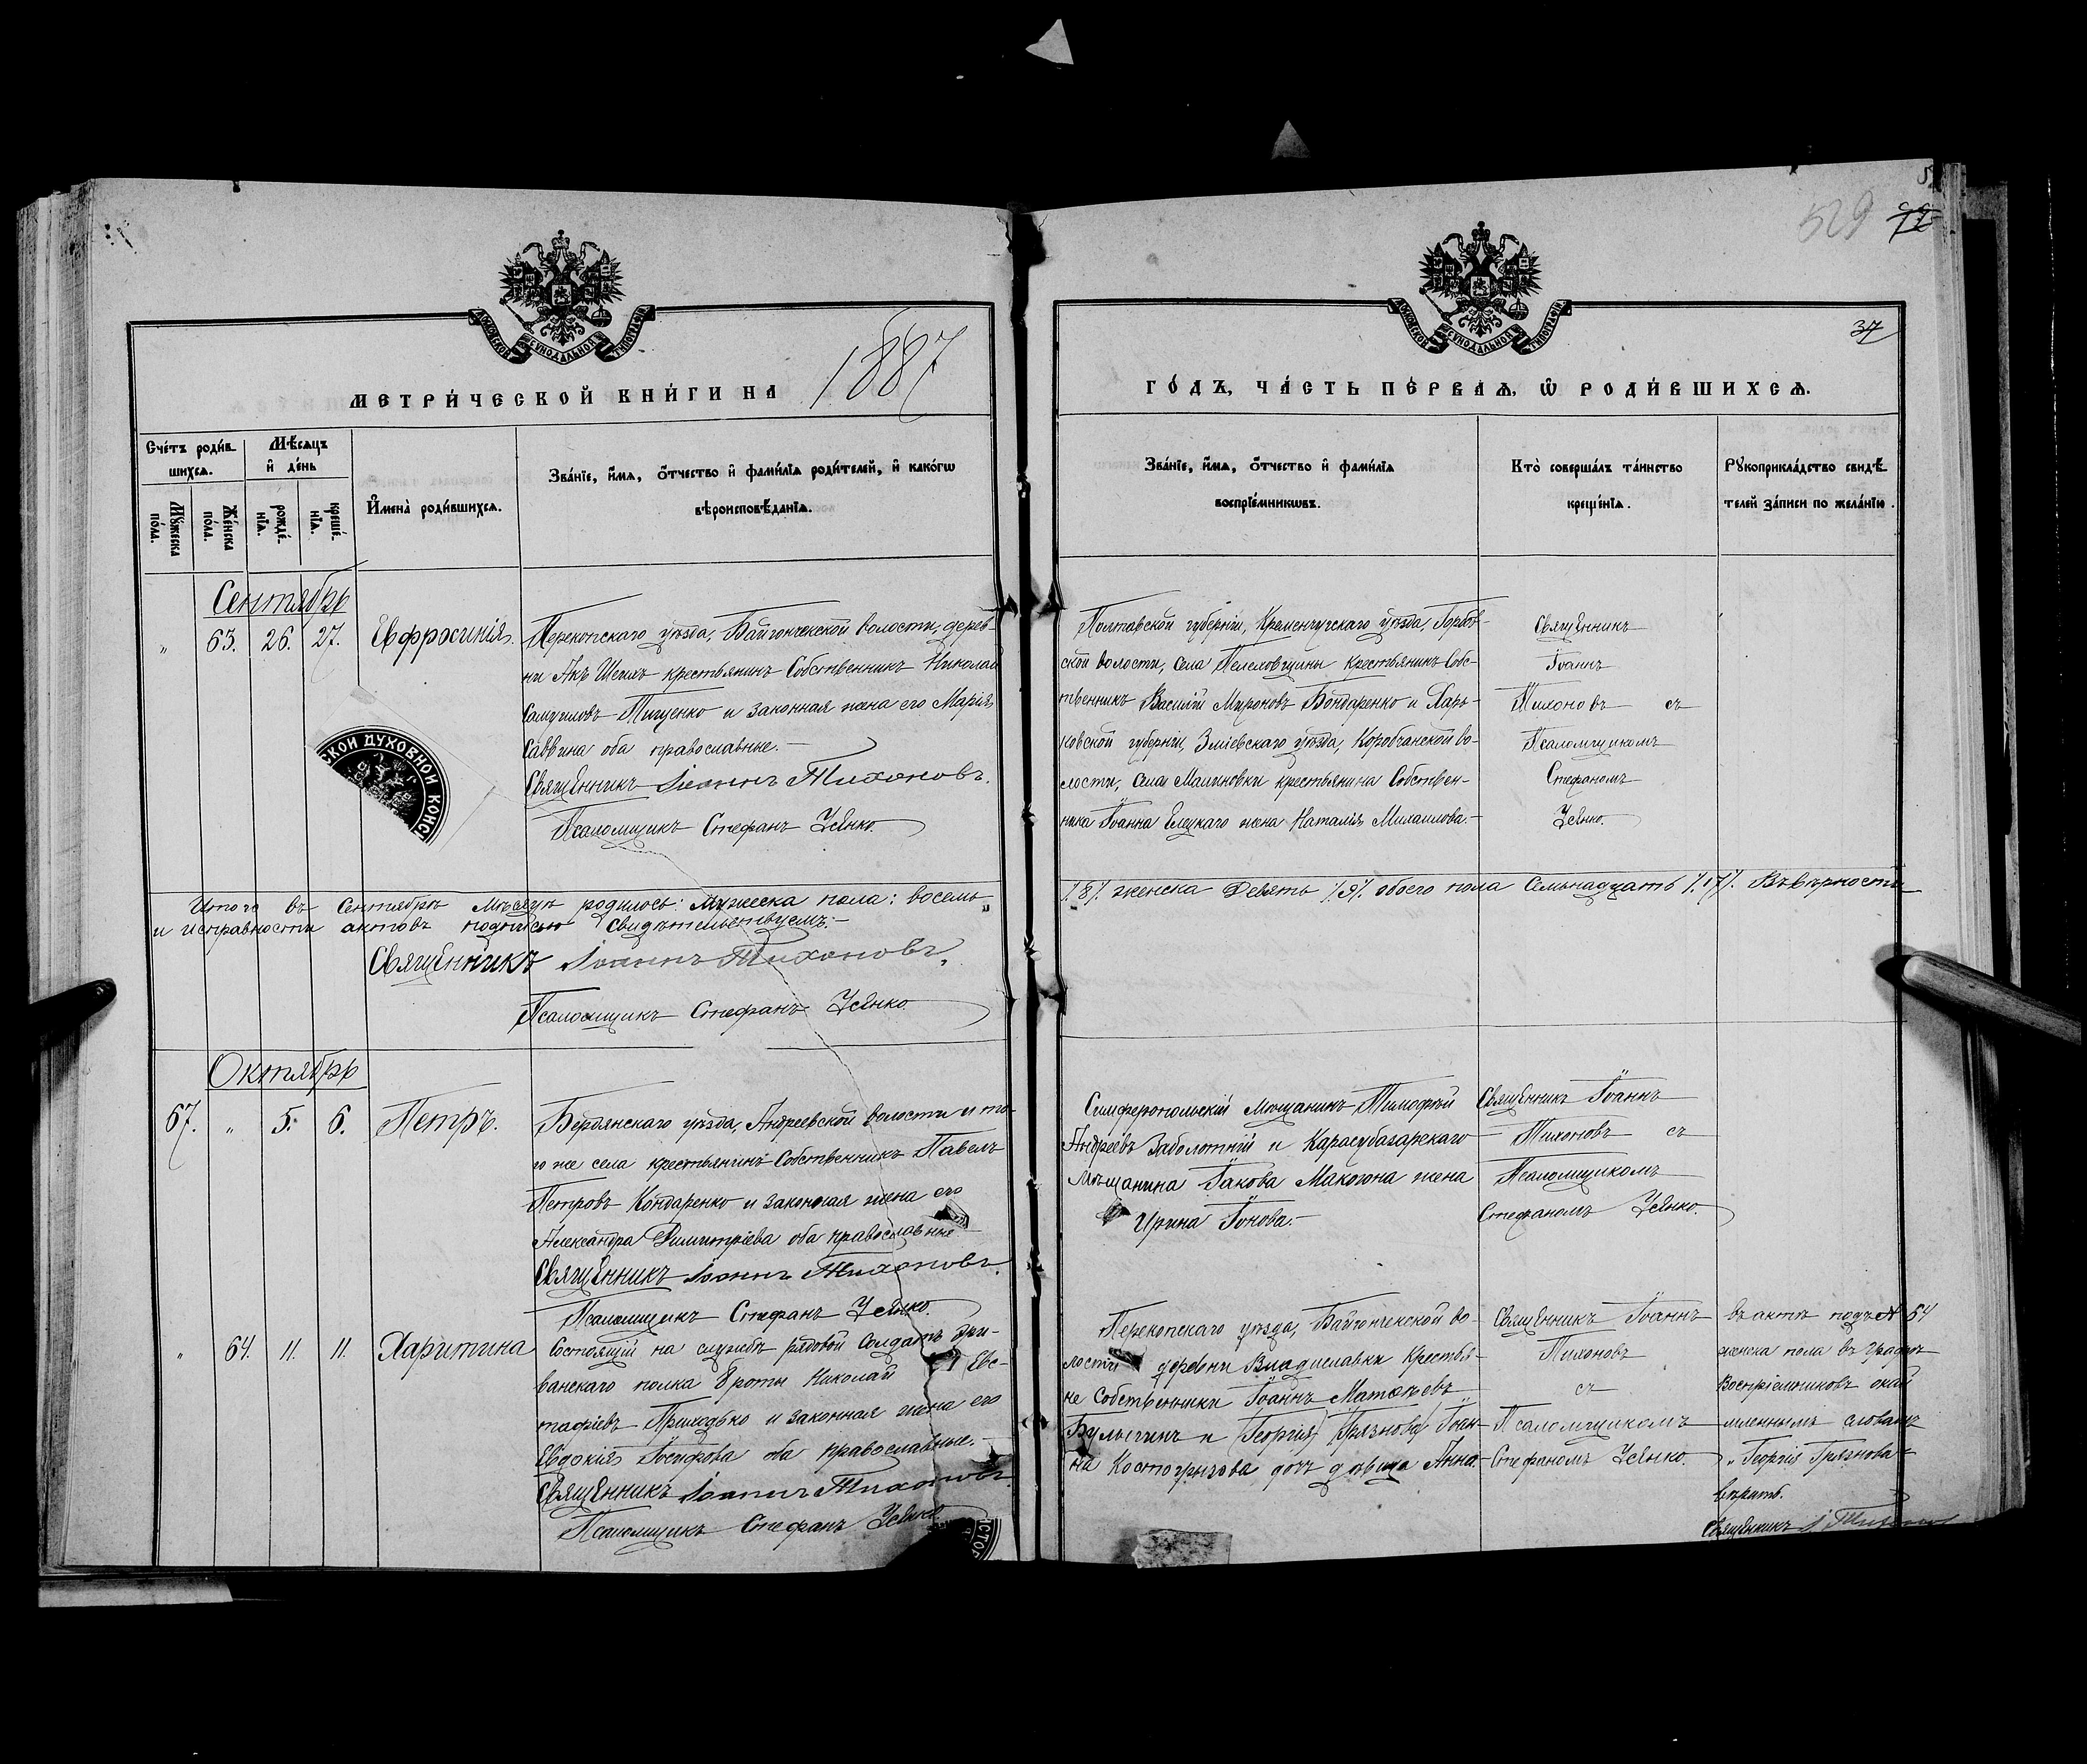 529
37
МОСКОВСКОЙ СУНОДАЛЬНОЙ ТИПОГРАФІИ
МОСКОВСКОЙ СУНОДАЛЬНОЙ ТИПОГРАФІИ
МЕТРИ́ЧЕСКОЙ КНИ́ГИ НА 1887
ГО́ДЪ, ЧА́СТЬ ПЕ́РВАѦ, Ѿ РОДИ́ВШИХСѦ.
Сче́тъ роди́в
шихсѧ.
Мѣ́сѧцъ
и҆ де́нь
Мꙋ́жеска
по́ла.
Же́нска
по́ла.
рожде́
нїѧ.
креще́
нїѧ.
И҆мена̀ роди́вшихсѧ.
Зва́нїе, и҆́мѧ, ѻ҆́тчество и҆ фами́лїѧ роди́телей, и҆ како́гѡ
вѣроисповѣ́данїѧ.
Зва́нїе, и҆́мѧ, ѻ҆́тчество и҆ фами́лїѧ
воспрїе́мникѡвъ.
Кто̀ соверша́лъ та́инство
креще́нїѧ.
Рꙋкоприкла́дство свидѣ́
телей за́писи по жела́нїю.
Сентябрь
„ 63. 26. 27. Евфросинія.
Перекопскаго уѣзда, Байгончекской волости, дерев-
ни Акъ Шеихъ крестьянинъ Собственникъ Николай
Самуиловъ Тищенко и законная жена его Марія
Саввина оба православные.-
Священникъ Іоаннъ Тихоновъ.
Псаломщикъ Стефанъ Усенко.
Полтавской губерніи, Кременчугскаго уѣзда,
ской волости, села крестьянинъ Собс-
твенникъ Василій Мироновъ Бондаренко и Харь-
ковской губерніи, Зміевскаго уѣзда, Коробчанской во-
лости, села Малиновки крестьянина Собствен-
ника Іоанна Елецкаго жена Наталія Михаилова.-
Священникъ
Іоаннъ
Тихоновъ съ
Псаломщикомъ
Стефаномъ
Усенко.
СКОЙ ДУХОВНОЙ КОНСИ
Итого въ Сентябрѣ мѣсяцѣ родилось: мужеска пола: восемь
/.8/. женска Девять /.9/. обоего пола Семьнадцать /.17/. Въ вѣрности
и исправности актовъ подписью свидѣтельствуемъ:-
Священникъ Іоаннъ Тихоновъ.
Псаломщикъ Стефанъ Усенко.
Октябрь
67. „ 5. 6. Петръ.
Бердянскаго уѣзда, Андреевской волости и то-
го же села крестьянинъ Собственникъ Павелъ
Петровъ Кондаренко и законная жена его
Александра Димитріева оба православные
Священникъ Іоаннъ Тихоновъ.
Псаломщикъ Стефанъ Усенко.
Симферопольскій мѣщанинъ Тимофей
Андреевъ Заболотній и Карасубазарскаго
мѣщанина Іакова Макогона жена
Ирина Іонова.-
Священникъ Іоаннъ
Тихоновъ съ
Псаломщикомъ
Стефаномъ Усенко.
„ 64. 11. 11. Харитина
Состоящій на службѣ рядовой Солдатъ Эри-
ванскаго полка 8 роты Николай Евс-
тафіевъ Приходько и законная жена его
Евдокія Іосифова оба православные.-
Священникъ Іоаннъ Тихоновъ
Псаломщикъ Стефанъ Усенко
Перекопскаго уѣзда, Байгончекской во-
лости деревни Владиславки крестья-
не Собственники Іоаннъ Матѳеевъ
Булыгинъ и (Георгія) (Грязнова) Іоан-
на Костогрызова дочь дѣвица Анна.
Священникъ Іоаннъ
Тихоновъ
съ
Псаломщикомъ
Стефаномъ Усенко.
въ актѣ подъ № 64
женска пола въ графѣ
Воспріемниковъ окай
мленнымъ словамъ
„Георгія Грязнова
вѣрить.
Священникъ І. Тихонов
ИСТОР